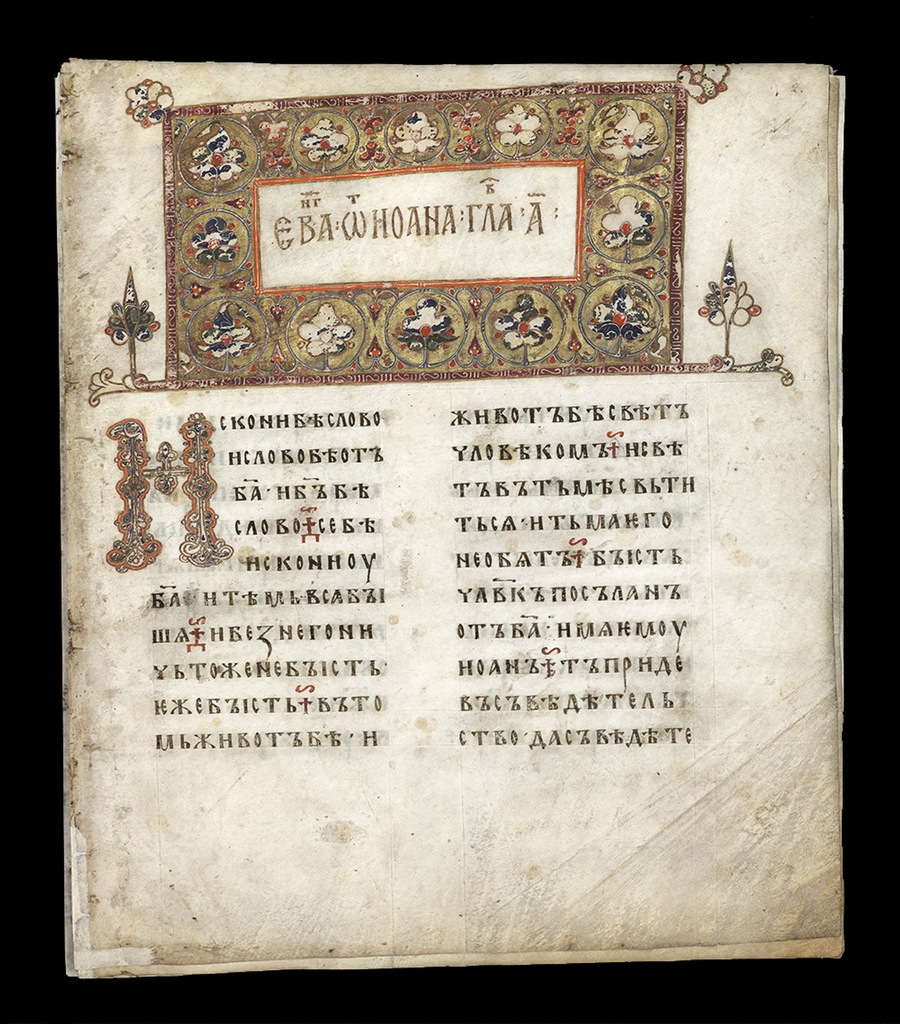 ЕВАⷩ҇ⷢ҇·Ѿ҇ИОАНА·ГЛАⷡ҇·А҃:
ИСКОНИБѢСЛОВО
ИСЛОВОБѢОТЪ
БА҃·ИБЪ҃БѢ
СЛОВО·СЕБѢ
ИСКОНИОУ
БА҃·ИТѢМЬВСѦБЪІ
ШѦ·ИБЕꙀНЕГОНИ
ЧЬТОЖЕНЕБЪІСТЬ·
ѤЖЕБЪІСТЬ·ВЪТО
МЬЖИВОТЪБѢ·И
ЖИВОТЪБѢСВѢТЪ
ЧЛОВѢКОМЪ·ИСВѢ
ТЪВЪТЬМѢСВЬТИ
ТЬСѦ·ИТЬМАѤГО
НЕОБѦТЪ·БЪІСТЬ
ЧЛАВ҃КЪПОСЪЛАНЪ
ОТЪБА҃·ИМѦѤМОУ
ИОАНЪ·ТЪПРИДЕ
ВЪСЪВѢДѢТЕЛЬ
СТВО·ДАСЪВѢДѢТЕ